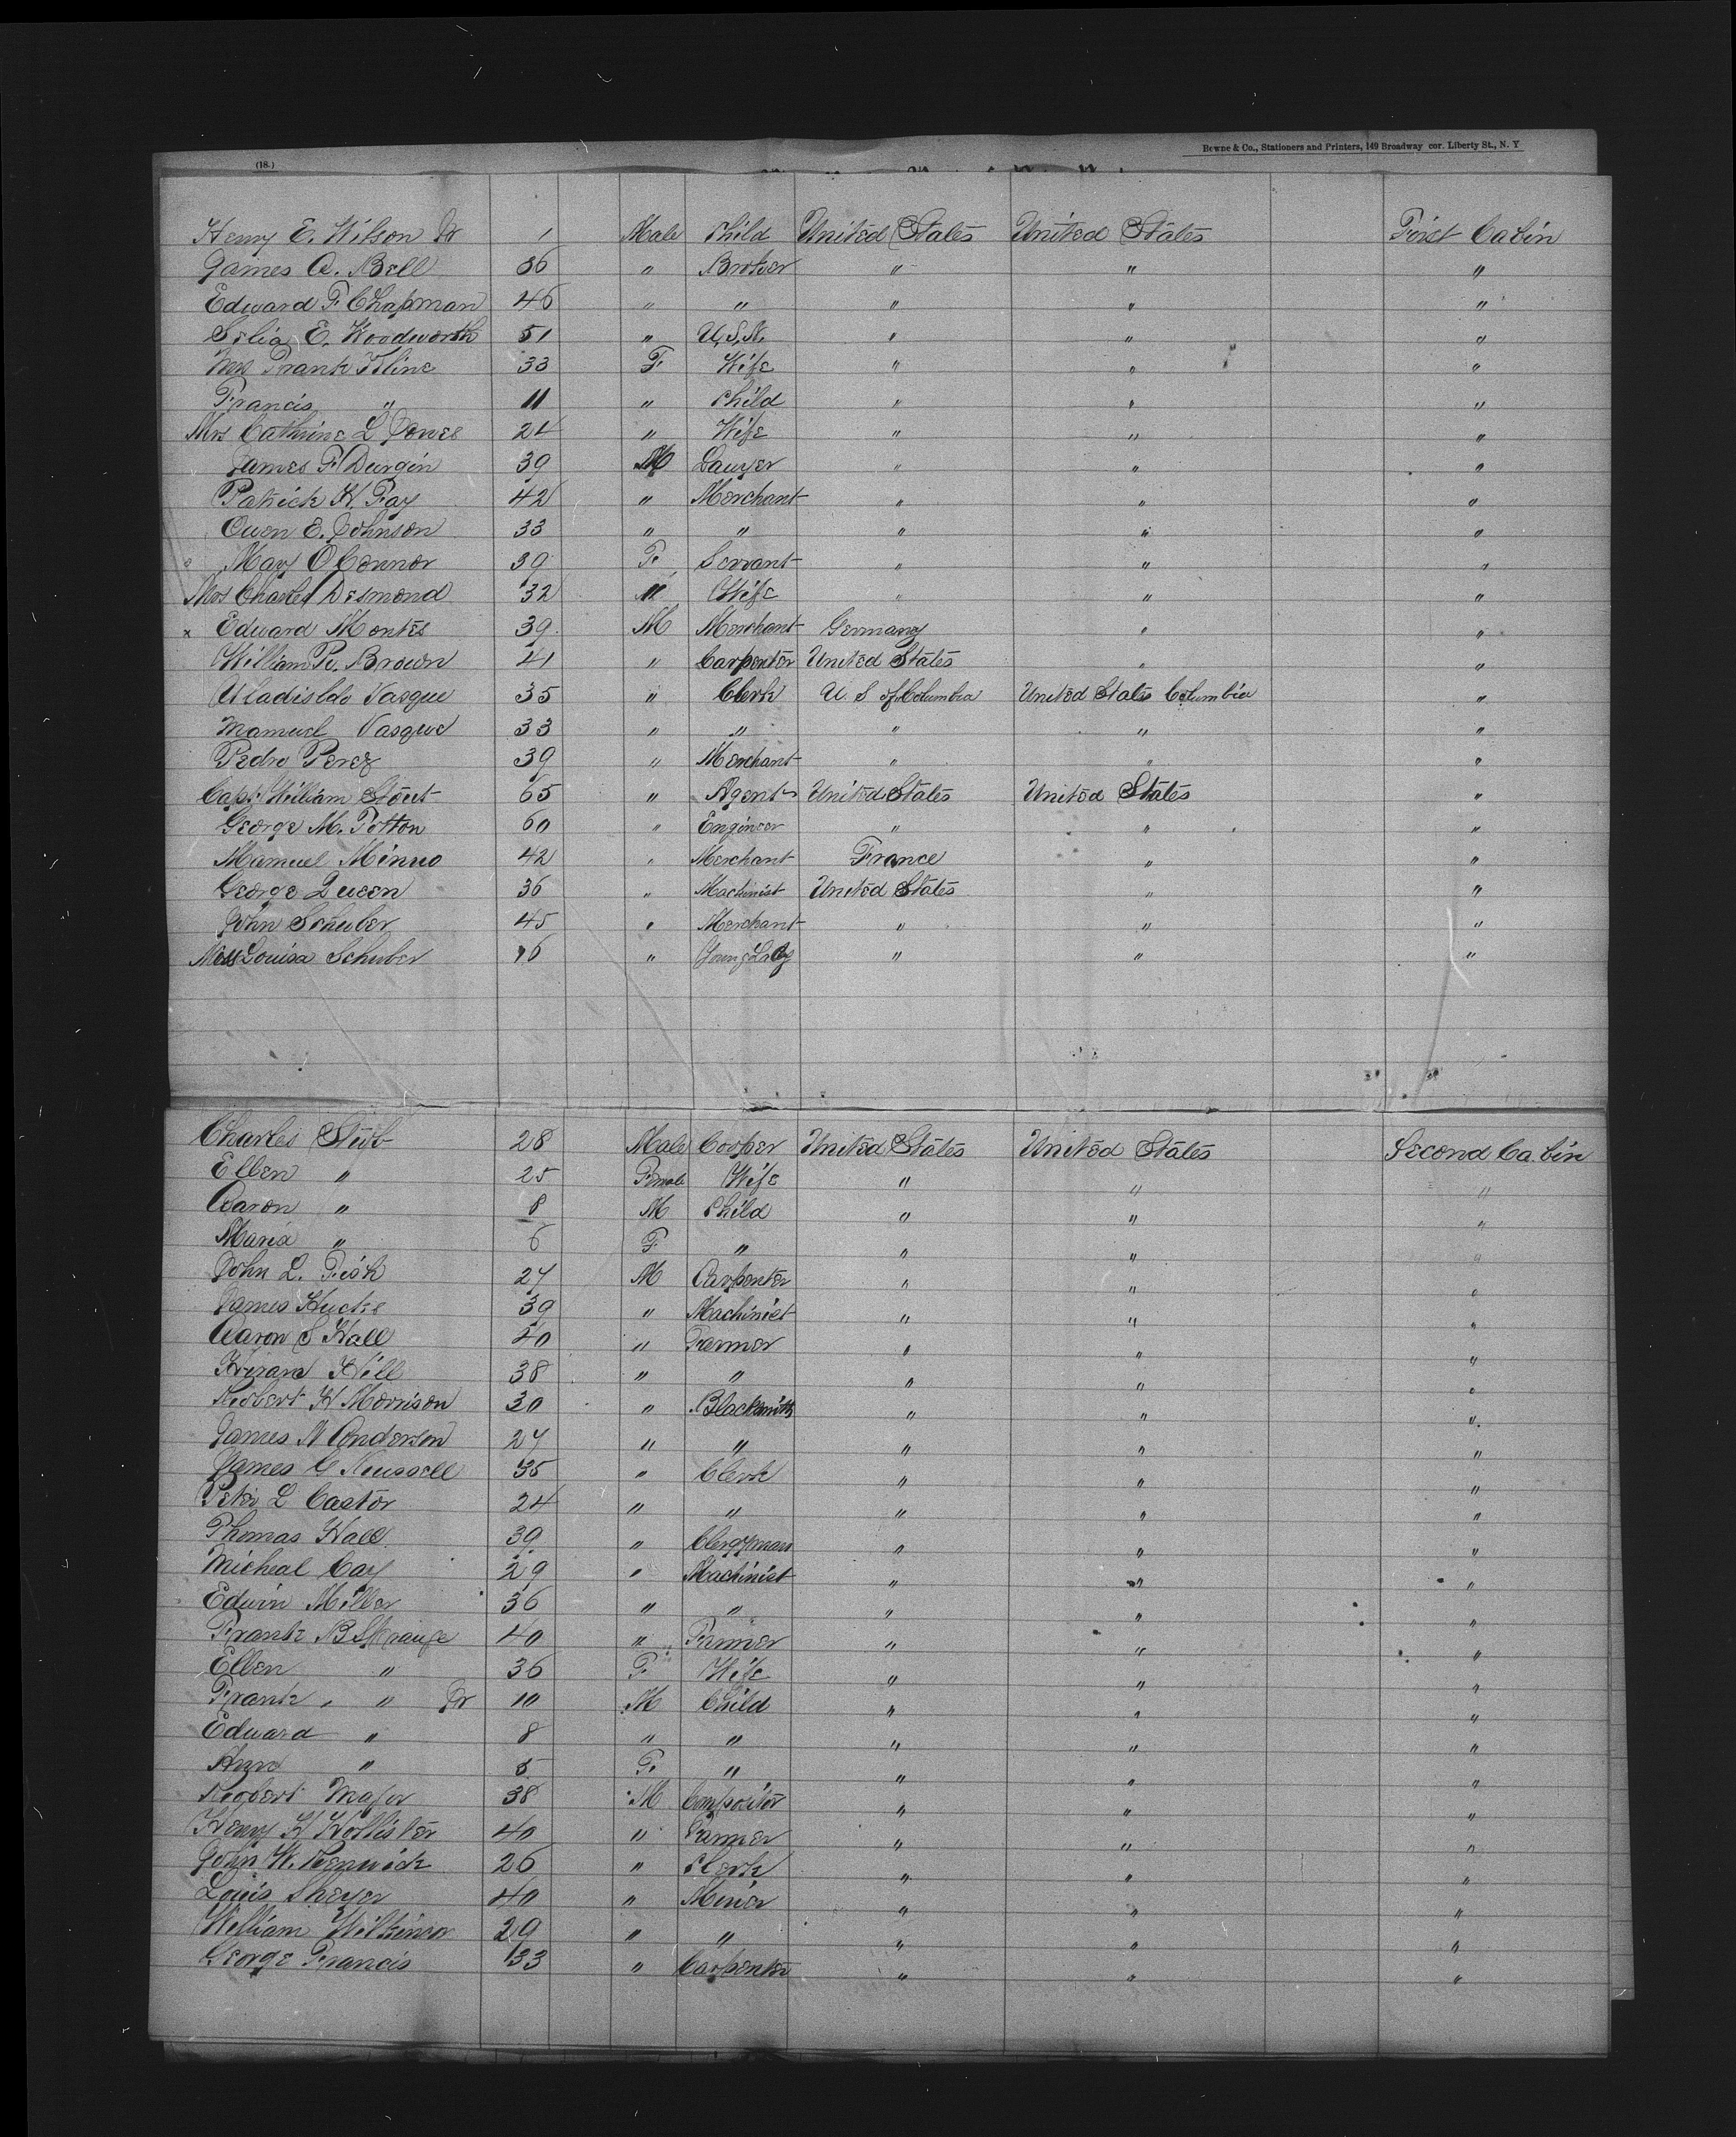 (18.)
Bowne & Co., Stationers and Printers, 149 Broadway cor. Liberty St., N. Y
Henry E. Wilson Jr 1 Male Child United States United States First Cabin
James A. Bell 36 " Broker " " "
Edward F. Chapman 46 " " " " "
E. Woodworth 51 " U.S.N. " " "
Mrs Frank 33 F. Wife " " "
Francis " 11 " Child " " "
Mrs Cathrine L Jones 24 " Wife " " "
James F. Durgin 39 M Lawyer " " "
Patrick H. Fay 42 " Merchant " " "
Owen E. Johnson 33 " " " " "
Mary O Connor 39 F. Servant " " "
Mrs Charles Desmond 32 " Wife " " "
x Edward Montes 39 M Merchant Germany " "
William R. Brown 41 " Carpenter United States " "
Uladislao Vasque 35 " Clerk U. S of Columbia United States Columbia "
Mamuel Vasque 33 " " " " "
Pedro Perez 39 " Merchant " " "
Capt William Stout 65 " Agent United States United States "
George M. Totton 60 " Engineer " " "
Mamuel Minuo 42 " Merchant France " "
George Queen 36 " Machinist United States " "
John Schuber 45 " Merchant " " "
Miss Louisa Schuber 16 " Young Lady " " "
Charles Stub 28 Male Cooper United States United States Second Cabin
Ellen " 25 Female Wife " " "
Aaron " 8 M Child " " "
Maria " 6 F. " " " "
John L. Fish 27 M Carpenter " " "
James Hucke 39 " Machinist " " "
Aaron S Hall 40 " Farmer " " "
Hiram Hill 38 " " " " "
Robert H Morrison 30 " Blacksmith " " "
James N Anderson 27 " " " " "
James C Russell 35 " Clerk " " "
Peter L Castor 24 " " " " "
Thomas Hall 39 " Clergyman " " "
Micheal Cay 29 " Machinist " " "
Edwin Miller 36 " " " " "
Frank B Strange 40 " Farmer " " "
Ellen " 36 F. Wife " " "
Frank " " Jr 10 M Child " " "
Edward " 8 " " " " "
Ann " 5 F. " " " "
Robert Major 38 M Compositor " " "
Henry H Hollister 40 " Farmer " " "
John W. Renwick 26 " Clerk " " "
Louis Sheyer 40 " Miner " " "
William Wilkinson 29 " " " " "
George Francis 33 " Carpenter " " "